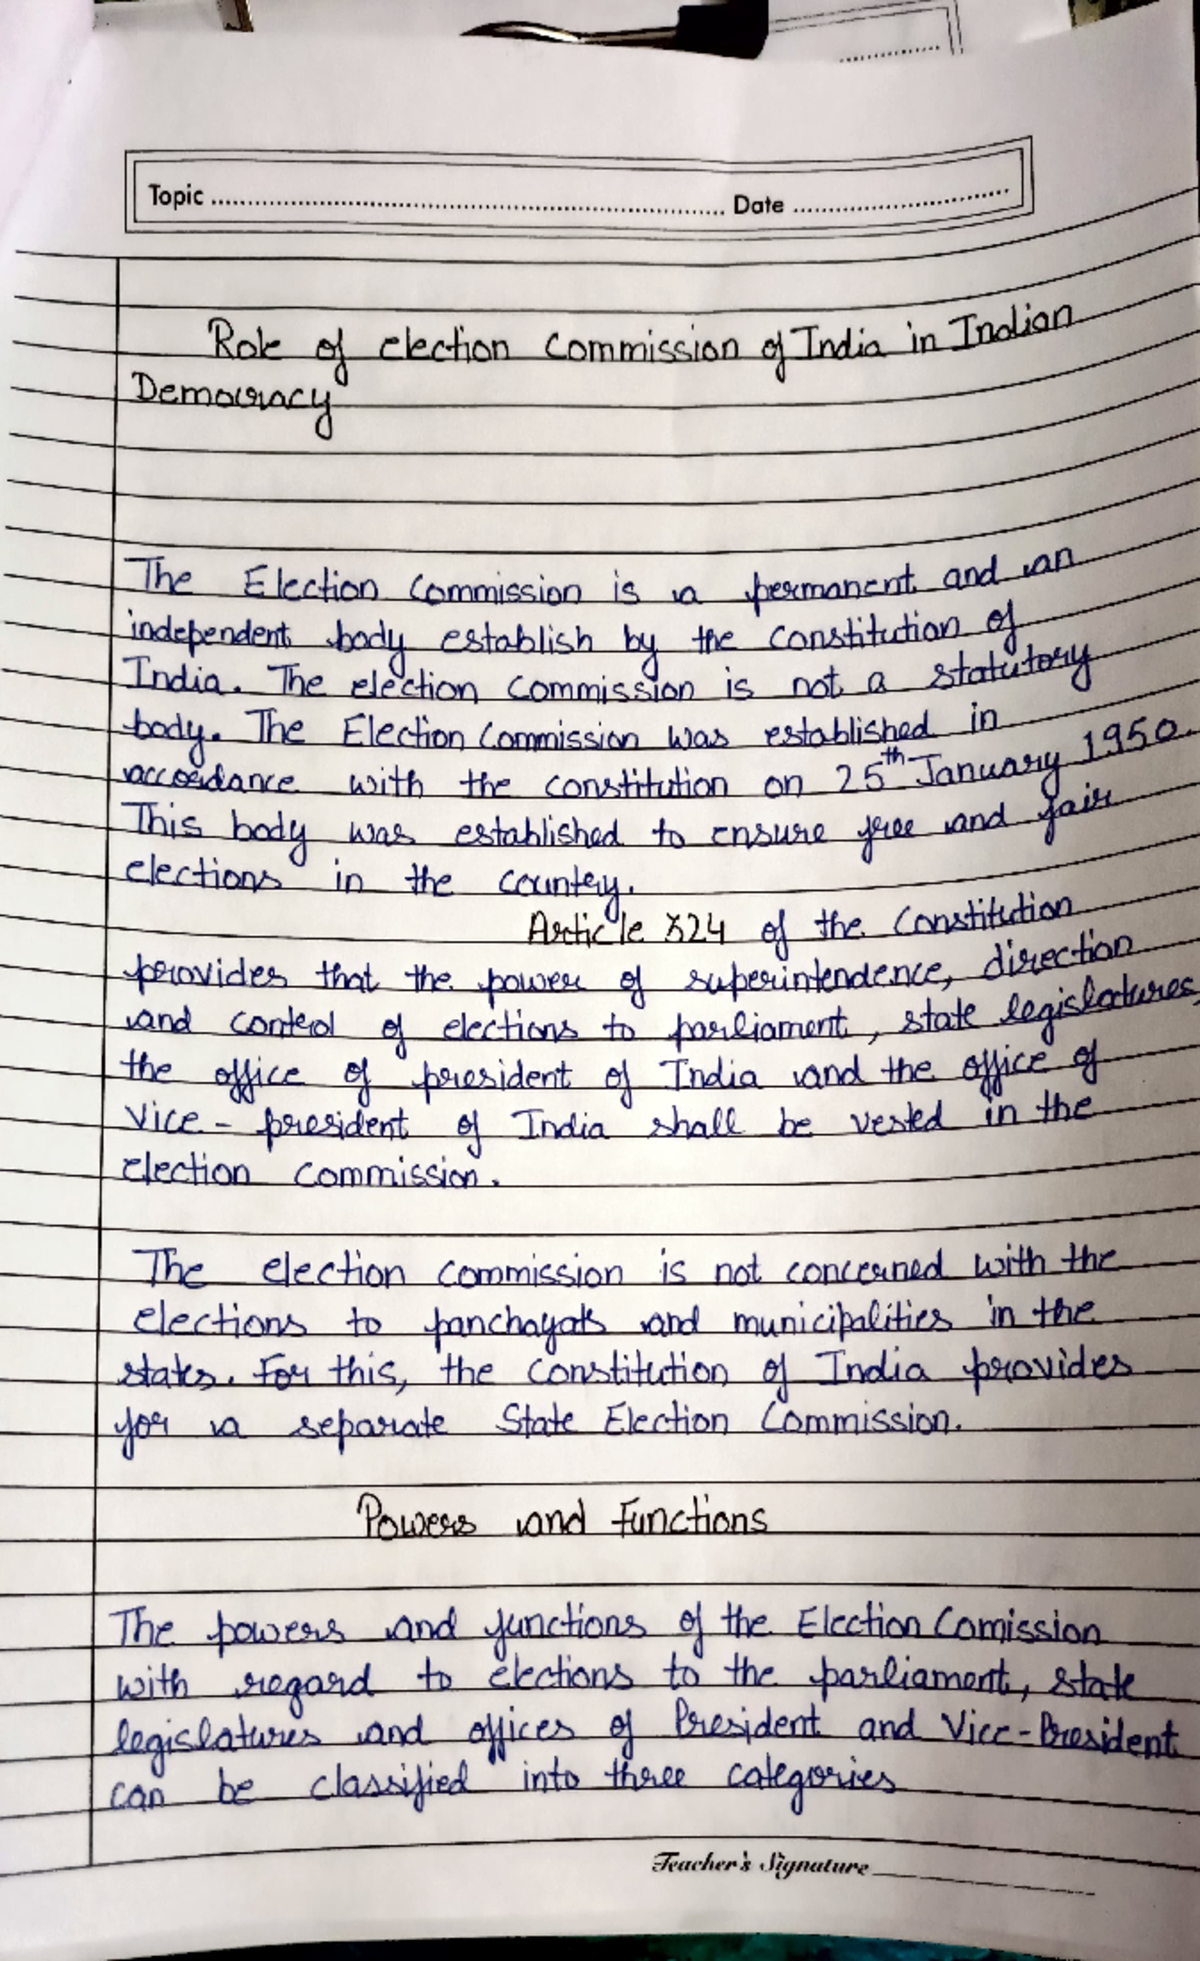 Topic ........................ Date ........................
Role of election Commission of India in Indian
Democracy
The Election Commission is a permanent and an
independent body establish by the constitution of
India. The election commission is not a statutory
body. The Election Commission was established in
accordance with the constitution on 25th January 1950.
This body was established to ensure free and fair
elections in the country.
Article 324 of the Constitution
provides that the power of superintendence, direction
and control of elections to parliament, state legislatures
the office of president of India and the office of
vice-president of India shall be vested in the
election commission.
The election commission is not concerned with the
elections to panchayats and municipalities in the
states. For this, the constitution of India provides
for a separate State Election Commission.
Powers and functions
The powers and functions of the Election Comission
with regard to elections to the parliament, state
legislatures and offices of President and Vice-President
can be classified into three categories
Teacher's Signature